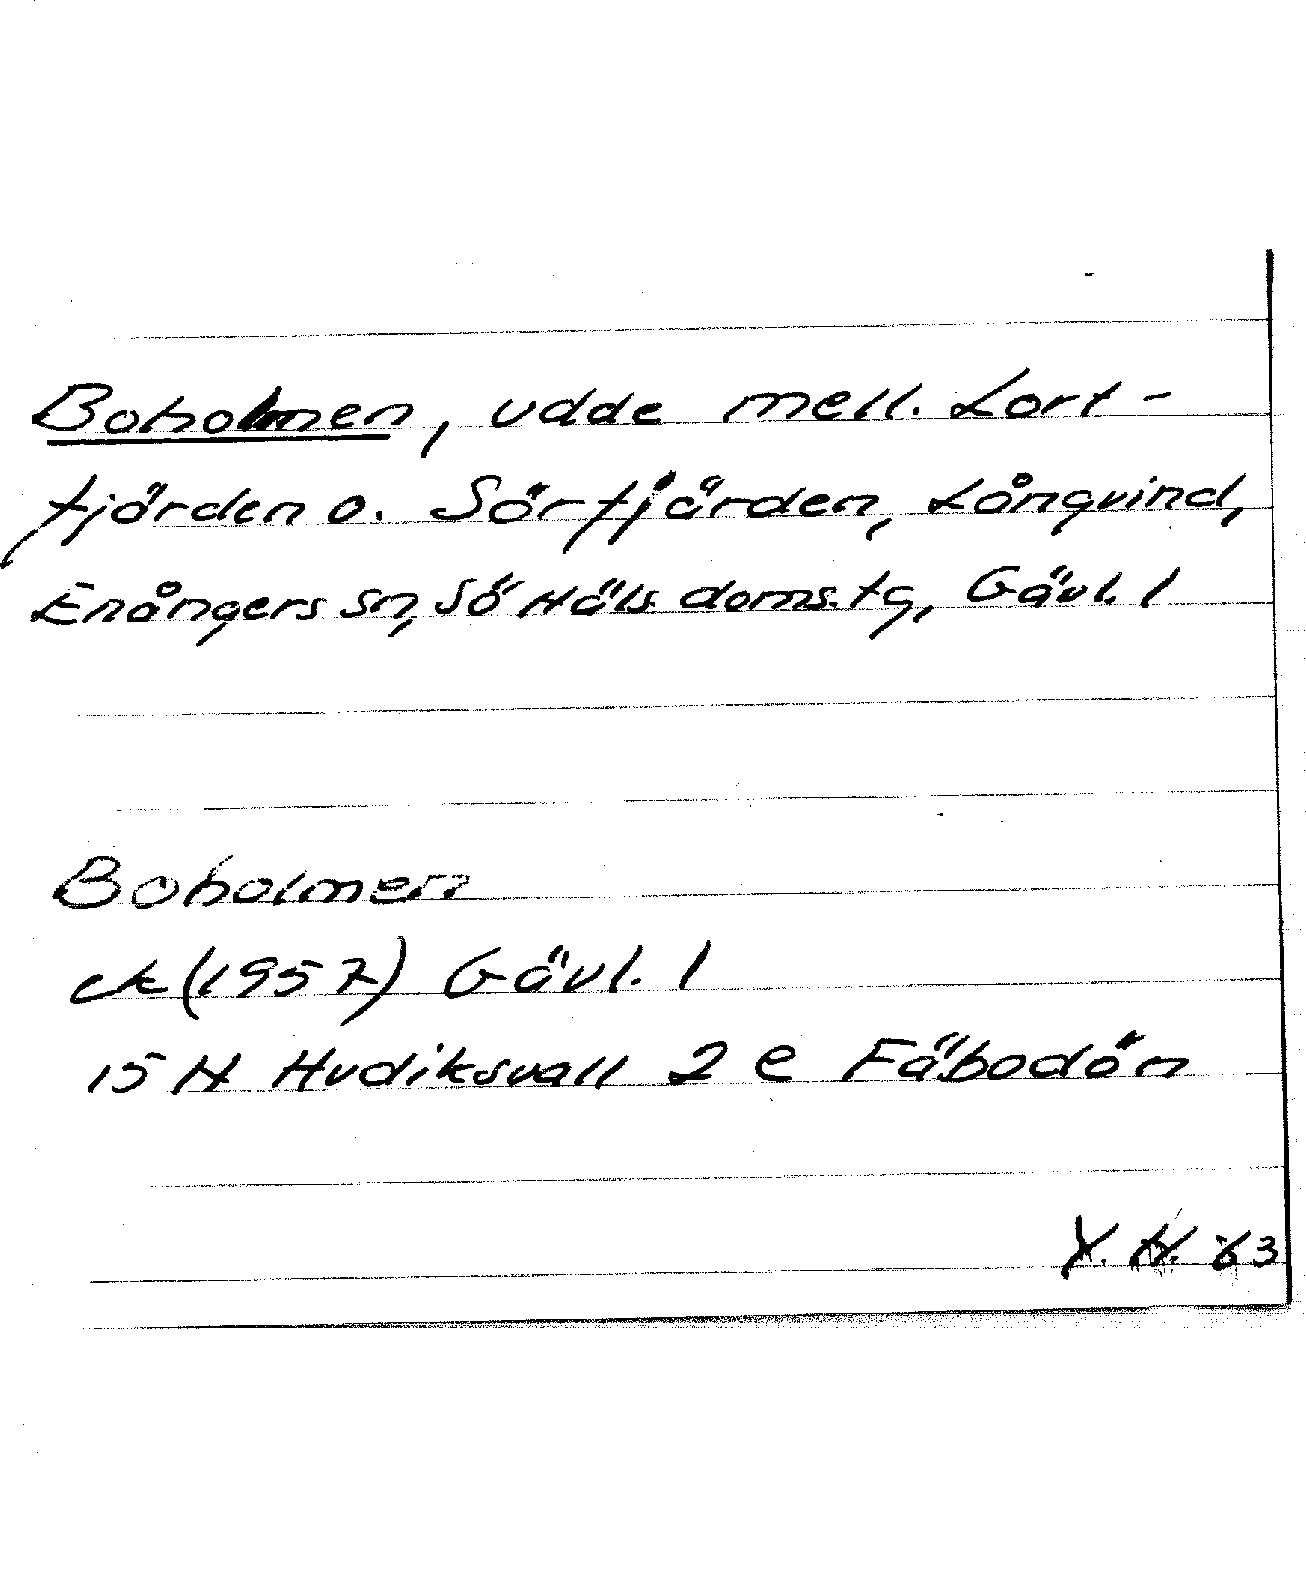 Boholmen, udde mell. Lort-
fjärden o. Sörfjärden, Långvind,
Enångers sn, Sö Häls. doms. tg, Gävl. l
Boholmen
ek (1957) Gävl. l
15 H Hudiksvall 2 e Fäbodön